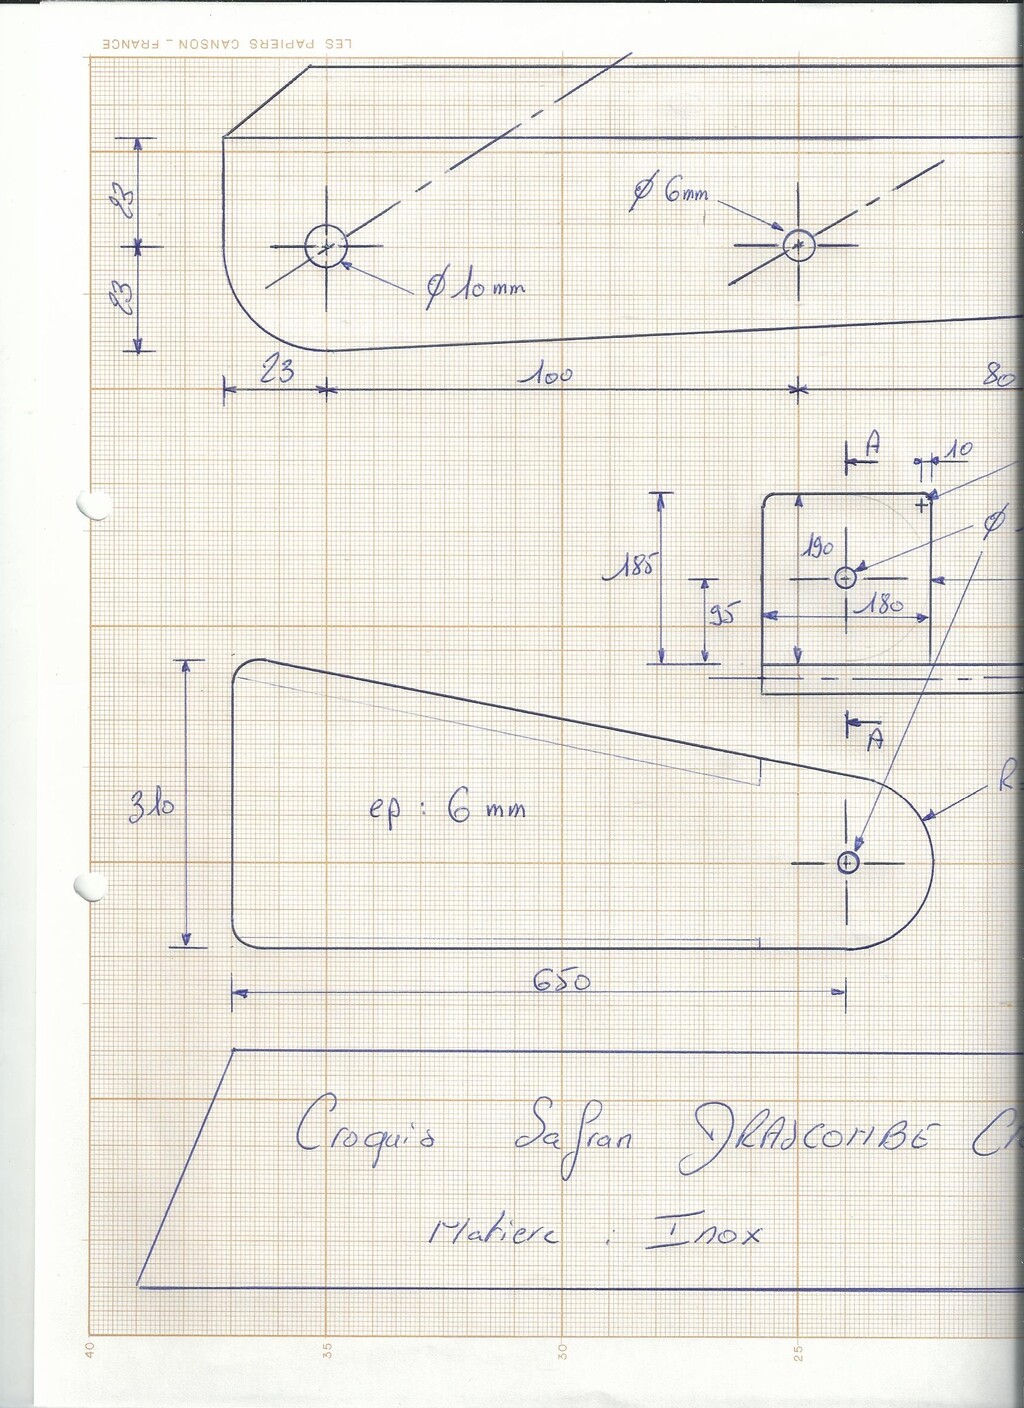 LES PAPIERS CANSON _ FRANCE
23
Ø 6mm
23
Ø 10 mm
23
100
80
A
10
Ø
185
190
95
180
A
R
310
ep : 6 mm
650
Croquis Safran DRASCOMBE
Matiere : Inox
40
35
30
25